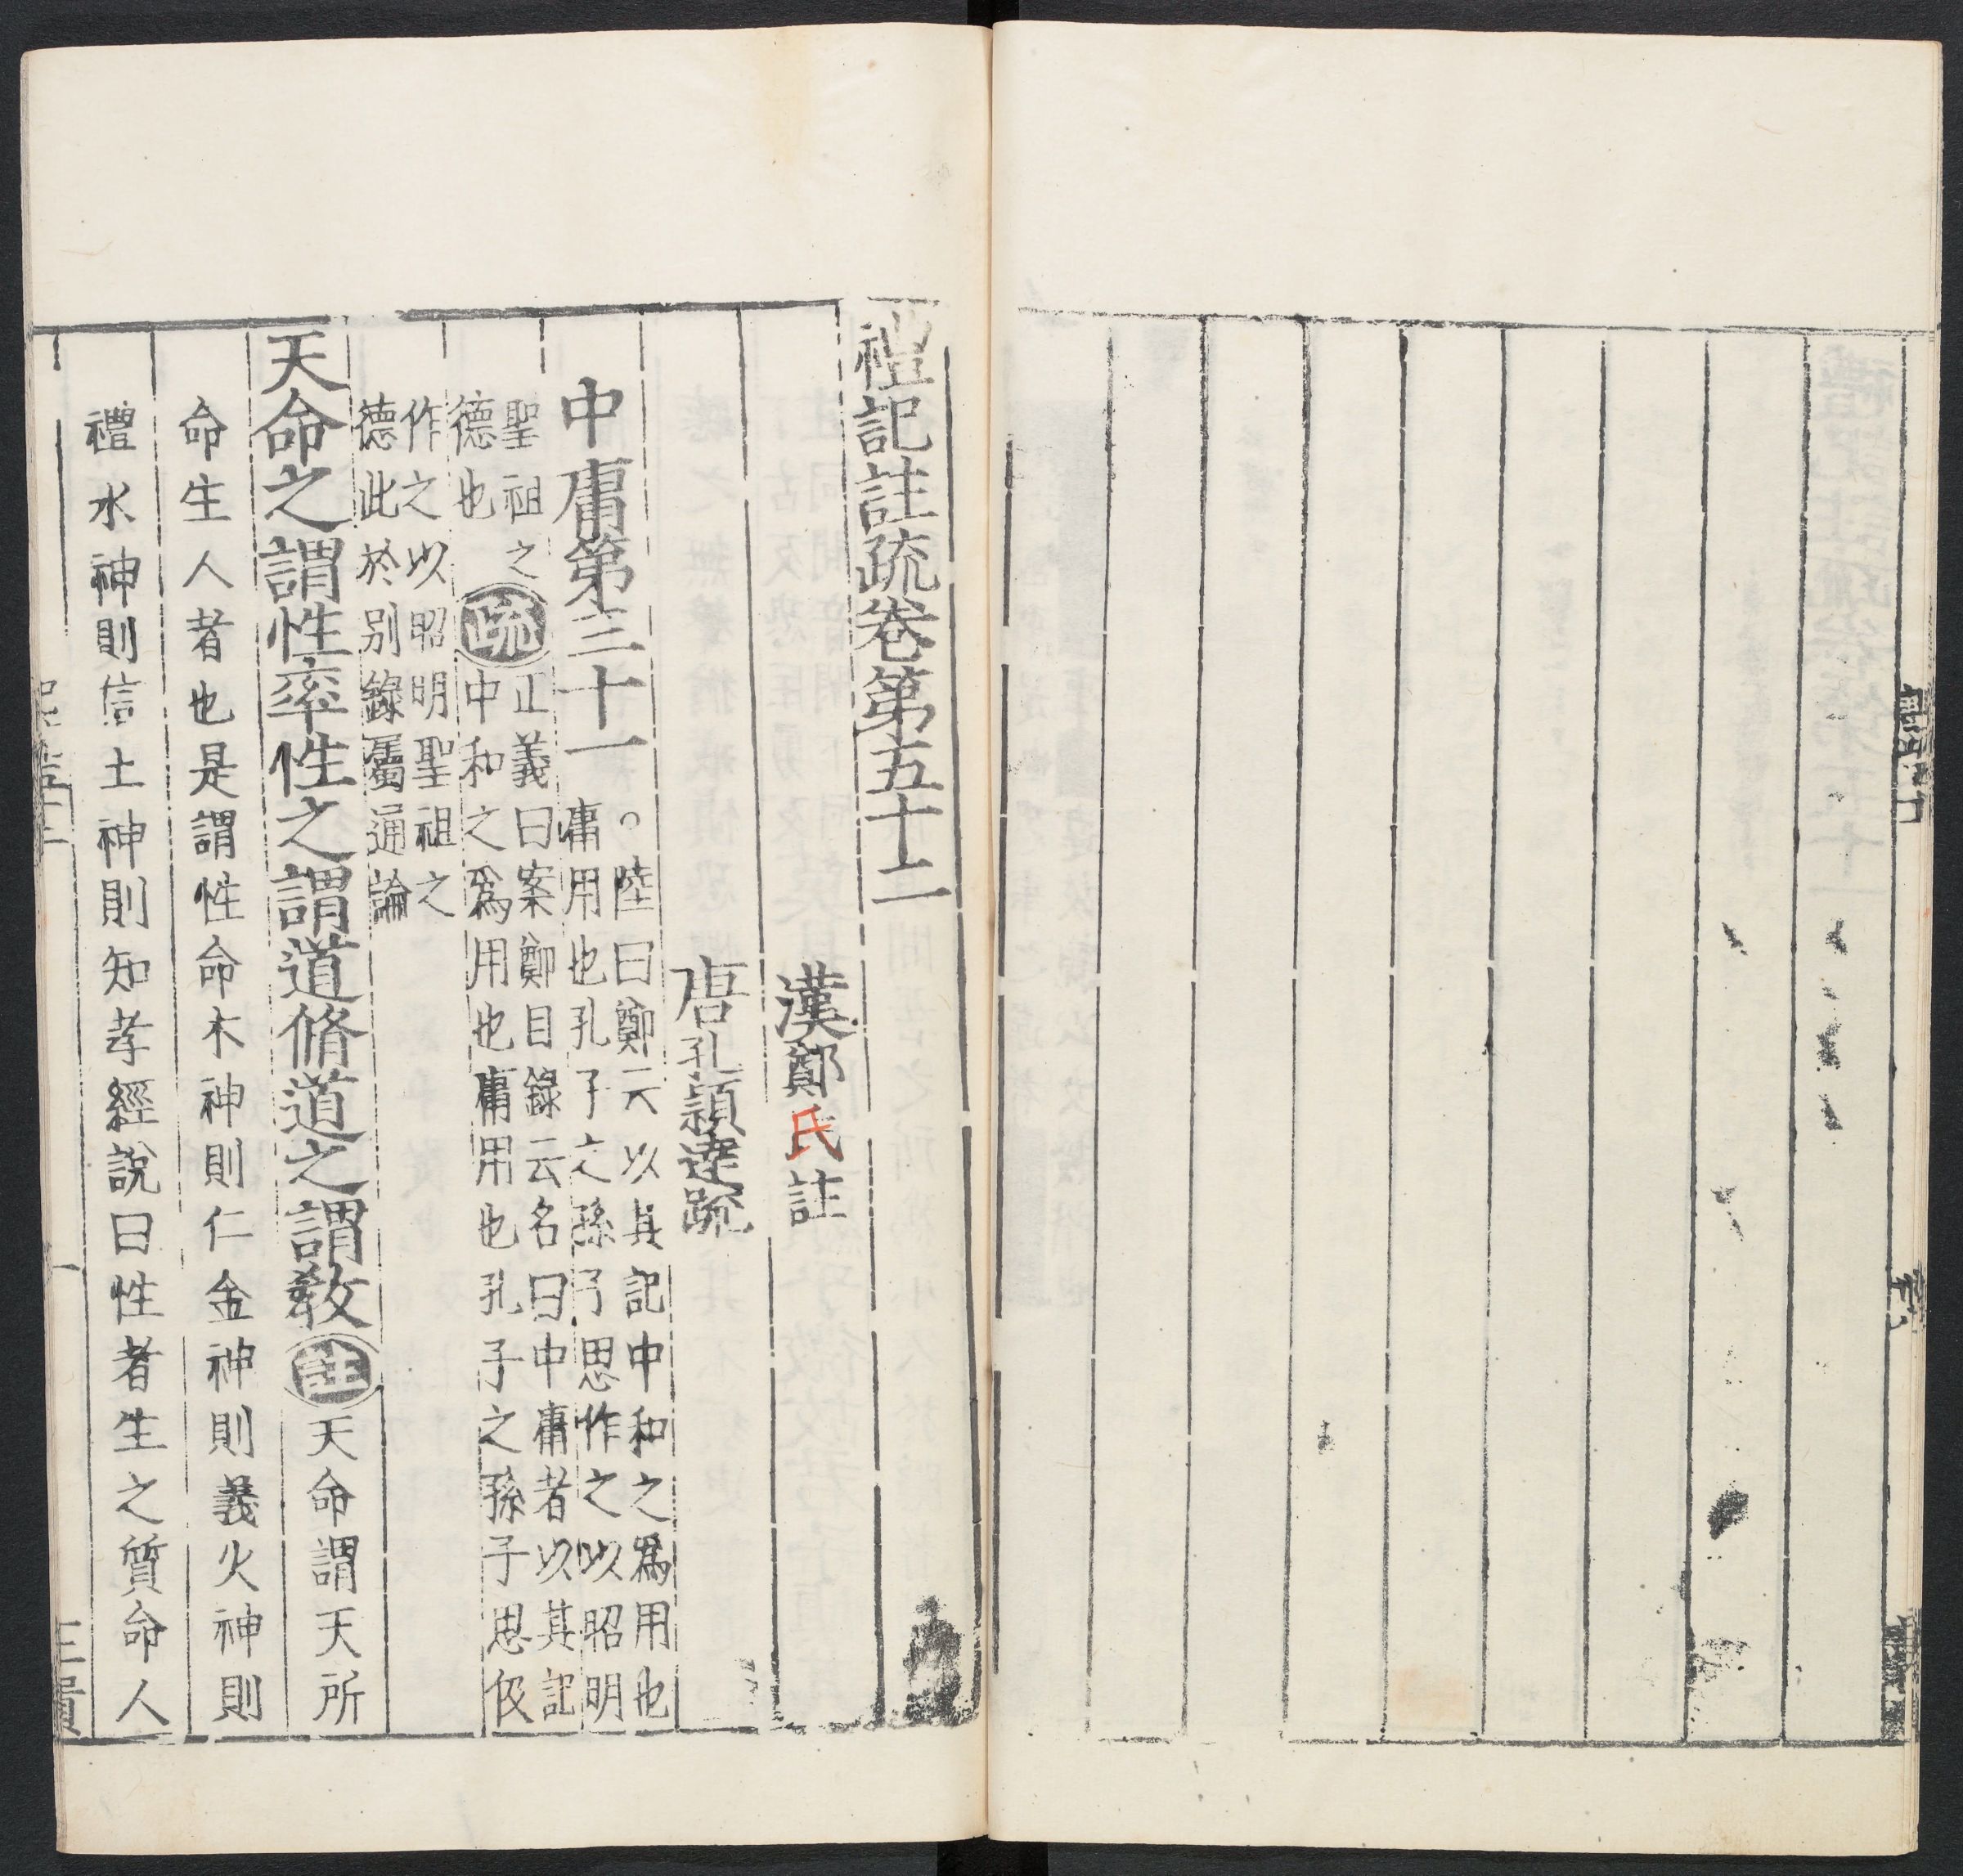 禮記註疏卷第五十二
漢鄭氏註
唐孔頴達疏
中庸第三十一
○陸曰鄭云以其記中和之爲用也
庸用也孔子之孫子思作之以昭明
聖祖之
德也
疏
正義曰案鄭目錄云名曰中庸者以其記
中和之爲用也庸用也孔子之孫子思伋
作之以昭明聖祖之
德此於別錄屬通論
天命之謂性率性之謂道脩道之謂教註天命謂天所
命生人者也是謂性命木神則仁金神則義火神則
禮水神則信土神則知孝經說曰性者生之質命人